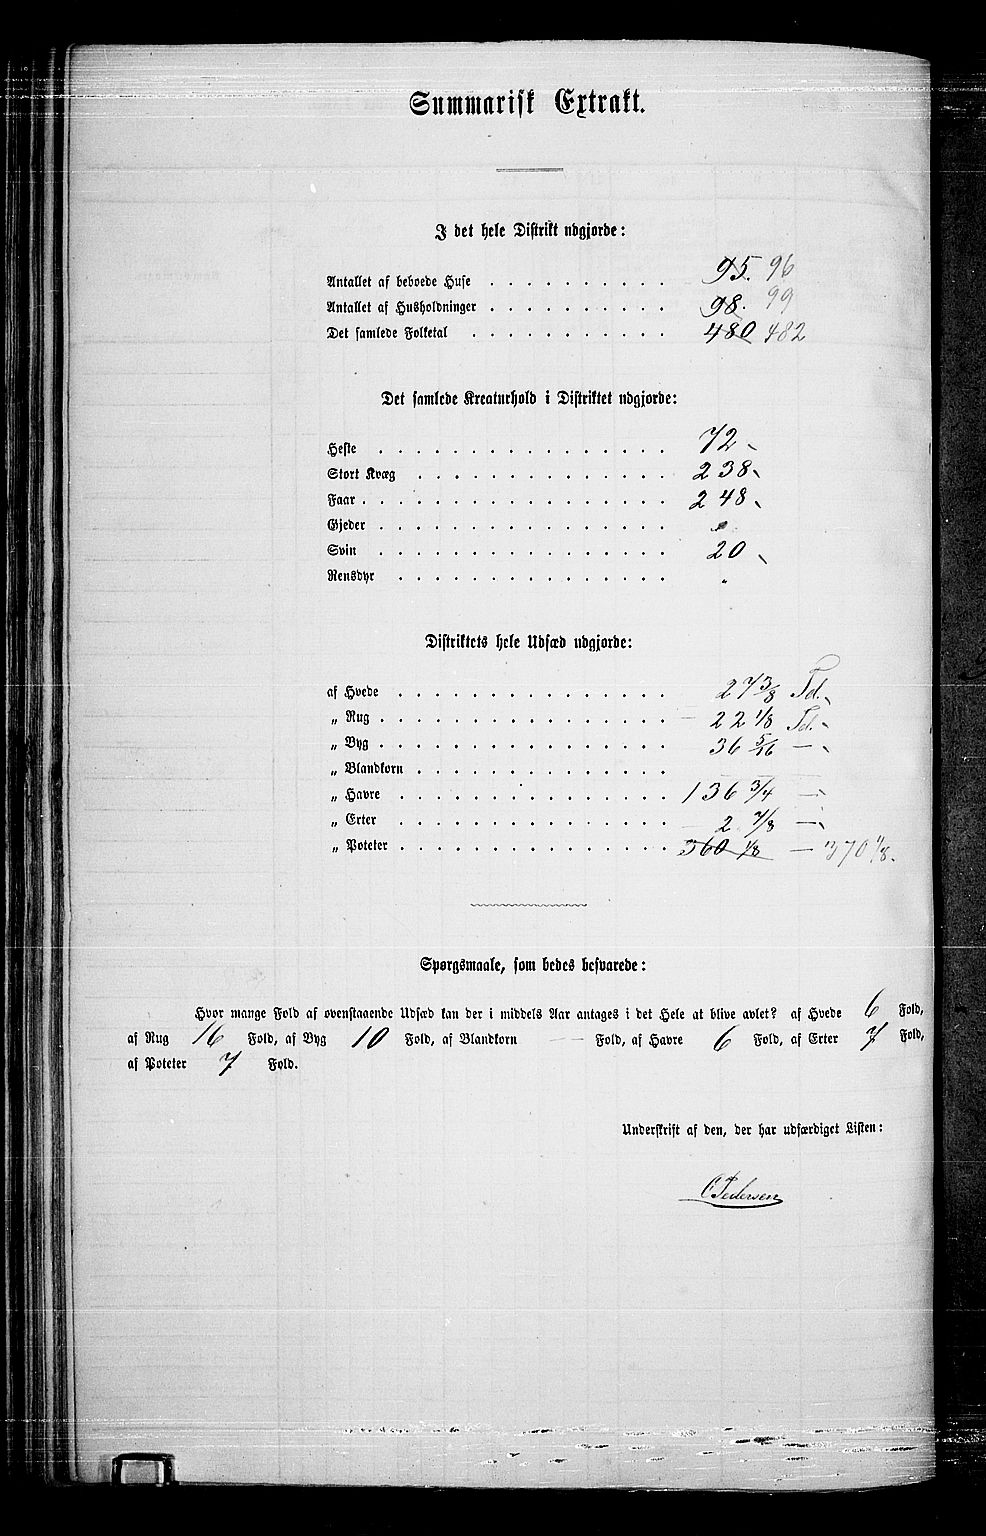 Summarisk Extrakt.
I det hele Distrikt udgjorde:
Antallet af beboede Huse . . . . . . . . . . 95. 96
Antallet af Husholdninger . . . . . . . . . . 98. 99
Det samlede Folketal . . . . . . . . . . . 480 482
Det samlede Kreaturhold i Distriktet udgjorde:
Heste . . . . . . . . . . . . . . . . 72
Stort Kvæg . . . . . . . . . . . . . . 238
Faar . . . . . . . . . . . . . . . . . 248
Gjeder . . . . . . . . . . . . . . . .
Svin . . . . . . . . . . . . . . . . 20
Rensdyr . . . . . . . . . . . . . . . "
Distriktets hele Udsæd udgjorde:
af Hvede . . . . . . . . . . . . . . . 27 3/8 Td.
„ Rug . . . . . . . . . . . . . . . . 22 1/8 Td.
„ Byg . . . . . . . . . . . . . . . . 36 5/16 —
„ Blandkorn . . . . . . . . . . . . . .
„ Havre . . . . . . . . . . . . . . . 136 3/4 —
„ Erter . . . . . . . . . . . . . . . 2 7/8 —
„ Poteter . . . . . . . . . . . . . . . 360 1/8 — 370 1/8.
Spørgsmaale, som bedes besvarede:
Hvor mange Fold af ovenstaaende Udsæd kan der i middels Aar antages i det Hele at blive avlet? af Hvede 6 Fold,
af Rug 16 Fold, af Byg 10 Fold, af Blandkorn — Fold, af Havre 6 Fold, af Erter 7 Fold,
af Poteter 7 Fold.
Underskrift af den, der har udfærdiget Listen:
CPedersen